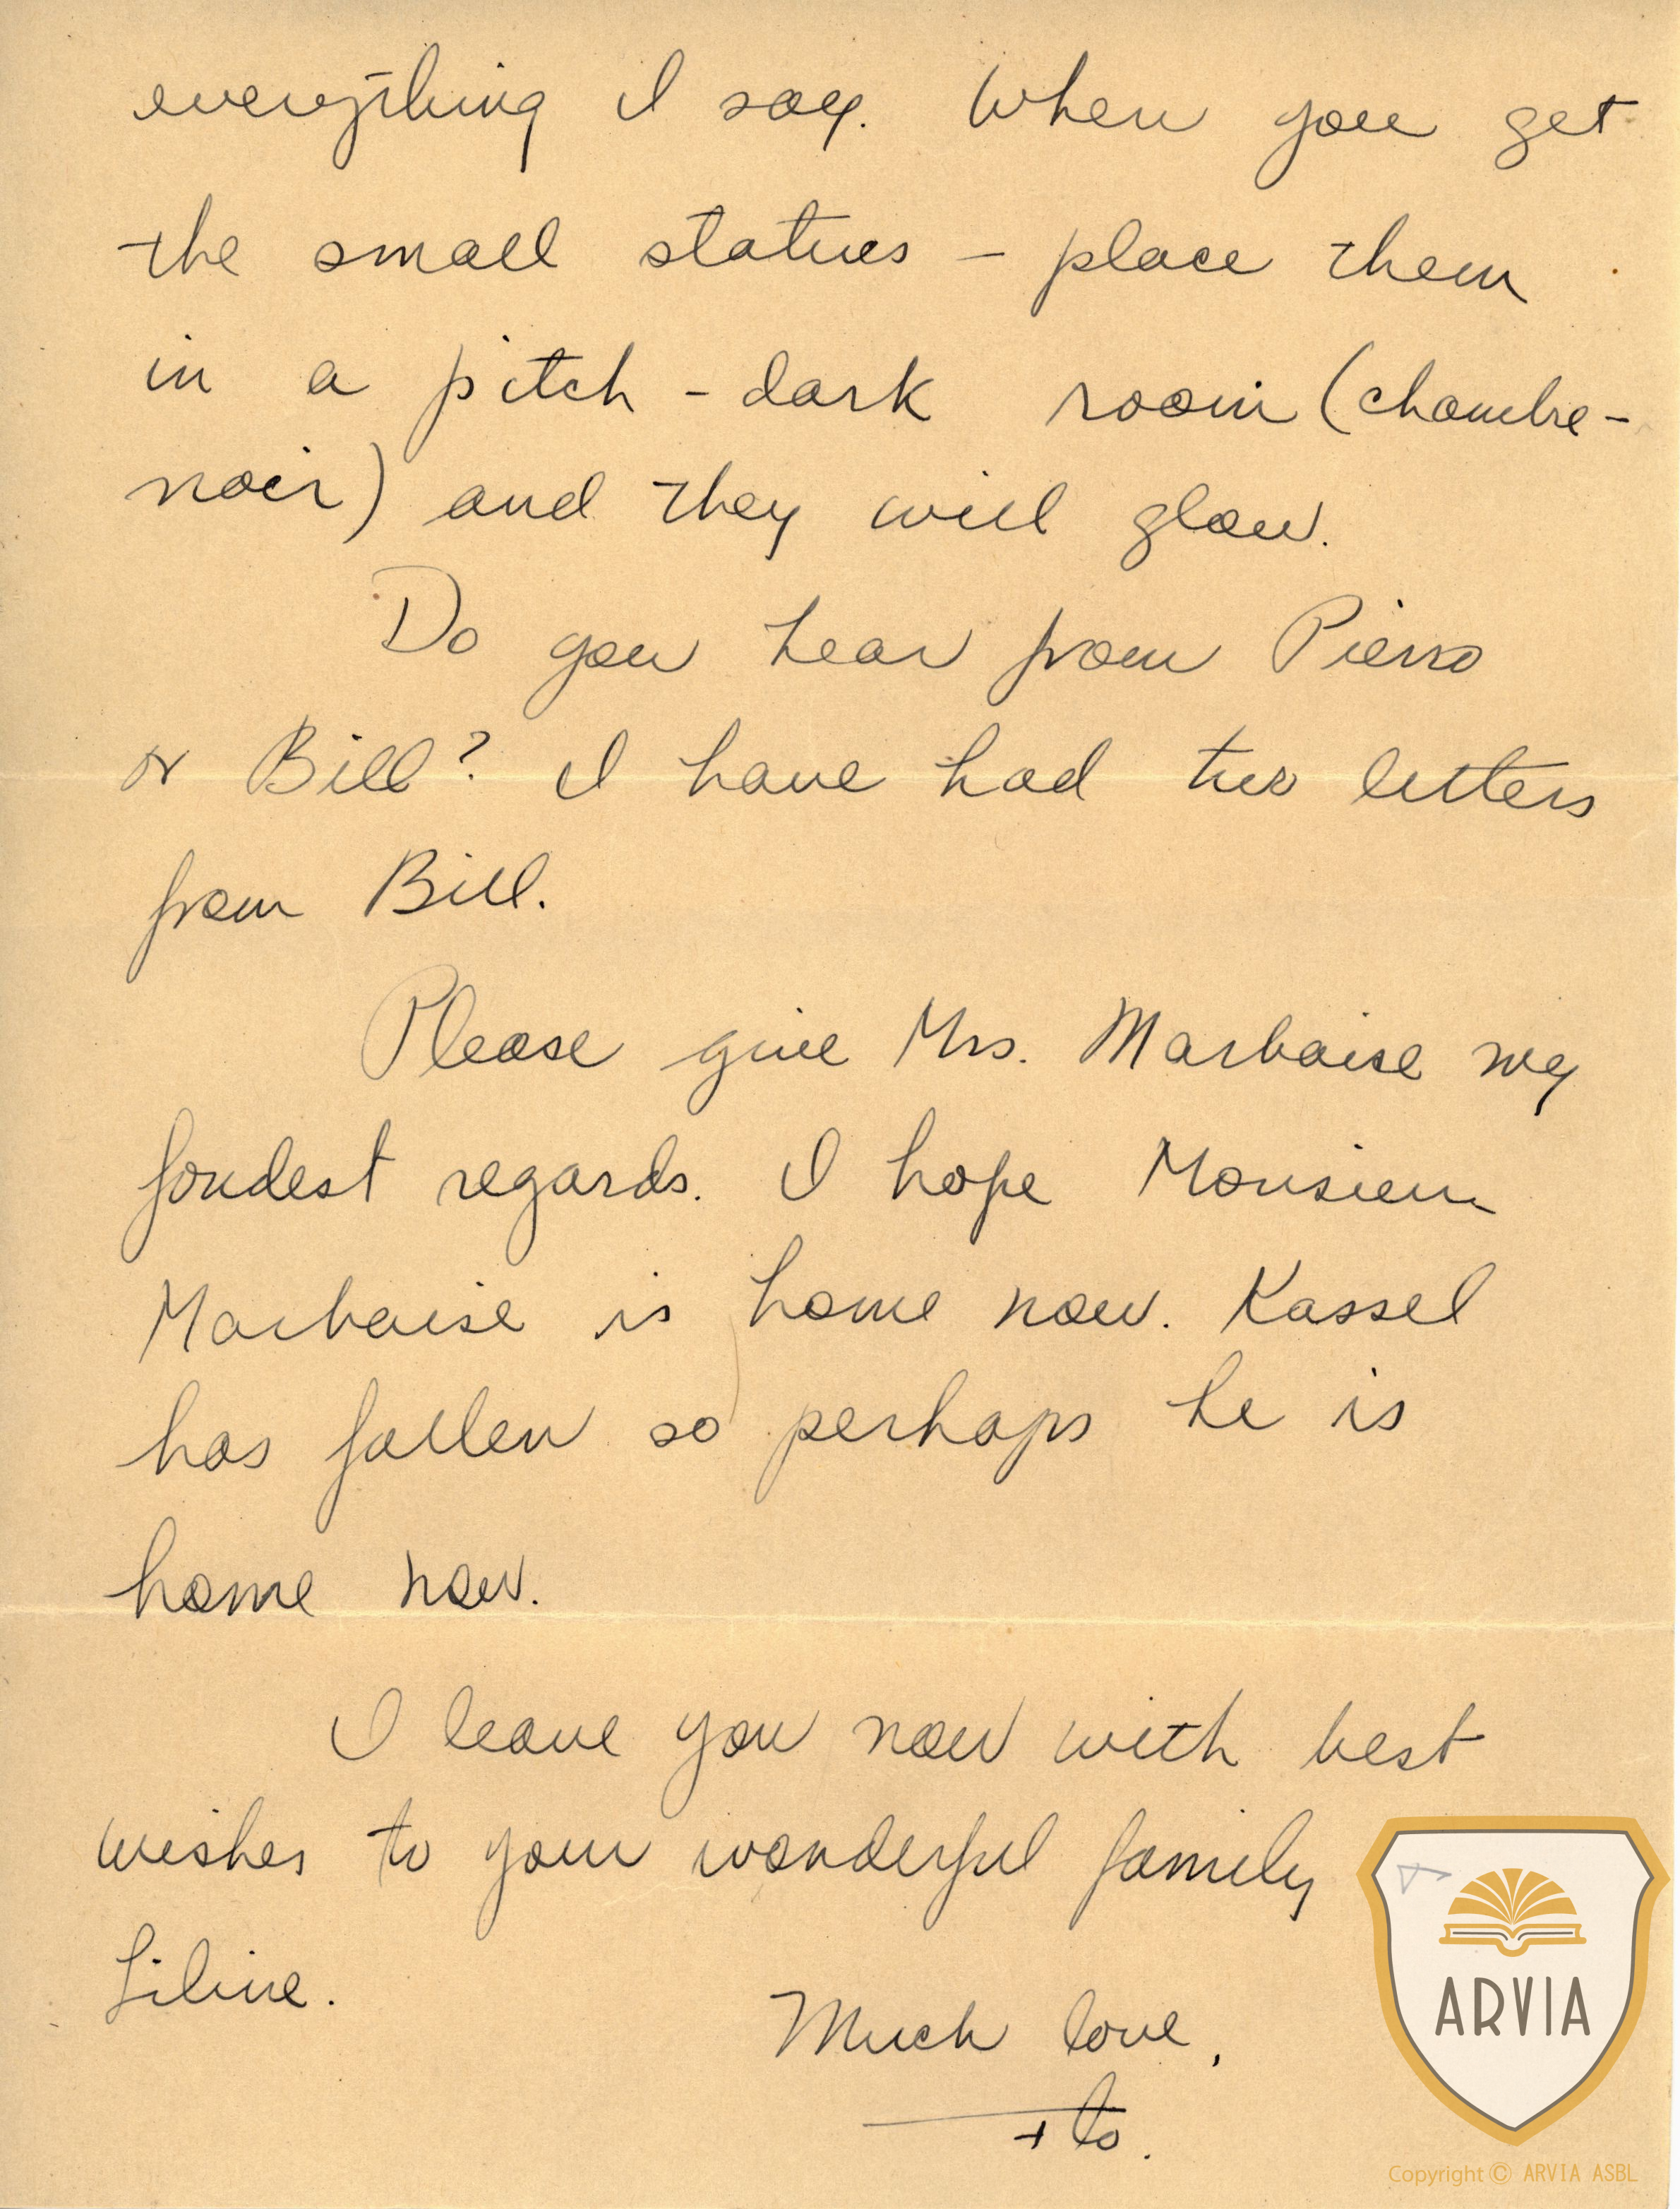 everything I say. When you get
the small statues – place them
in a pitch-dark room (chambre-
noir) and they will glow.
Do you hear from Pierro
or Bill? I have had two letters
from Bill.
Please give Mrs. Marbaise my
fondest regards. I hope Monsieur
Marbaise is home now. Kassel
has fallen so perhaps he is
home now.
I leave you now with best
wishes to your wonderful family
Liline.
Much love,
ARVIA
Copyright © ARVIA ASBL